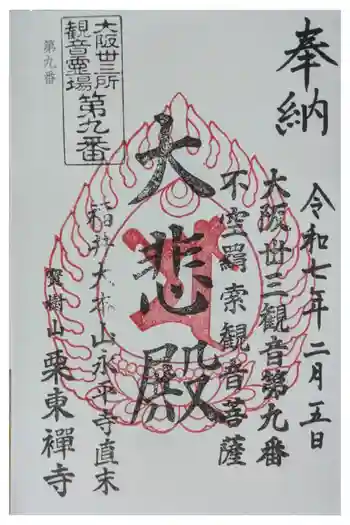 奉納
令和七年二月五日
大阪卅三観音第九番
不空羂索観音菩薩
大悲殿
大本山永平寺直末
寳樹山
栗東禪寺
大阪卅三所
観音霊場
第九番
第九番